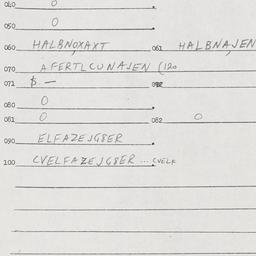 040 0
050 0
060 HALBNOXAXT 061 HALBNAJEN
070 AFERTLCUNAJEN (120
071 $ —
080 0
081 0 082 0
090 ELFAZEJG8ER
100 CVELFAZEJG8ER ... CVELF